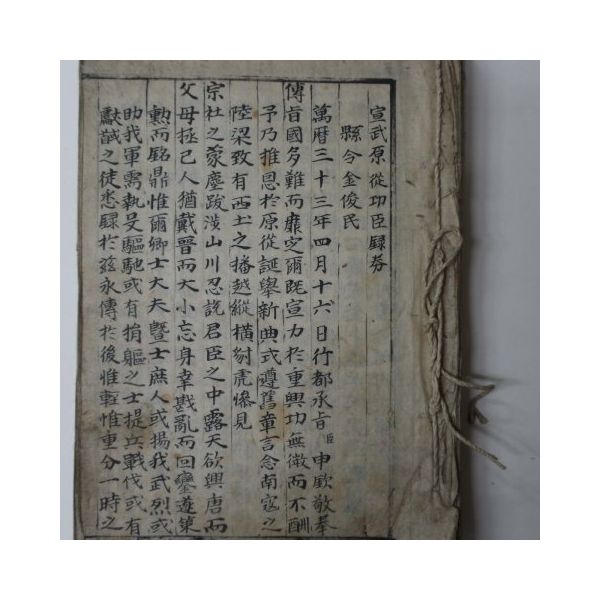 宣武原從功臣錄券
縣令金俊民
萬曆三十三年四月十六日行都承旨臣申欽敬奉
傳旨國多難而靡定爾旣宣力於重興功無微而不酬
予乃推恩於原從誕舉新典式遵舊章言念南寇之
陸梁致有西土之播越縱橫豺虎慘見
宗社之蒙塵跋涉山川忍說君臣之中露天欲興唐而
父母拯已人猶戴晉而大小忘身幸戡亂而回鑾遂策
勳而銘鼎惟爾卿士大夫曁士庶人或揚我武烈或
助我軍需執殳驅馳或有捐軀之士提兵戰伐或有
獻馘之徒悉錄於玆永傳於後惟輕惟重分一時之